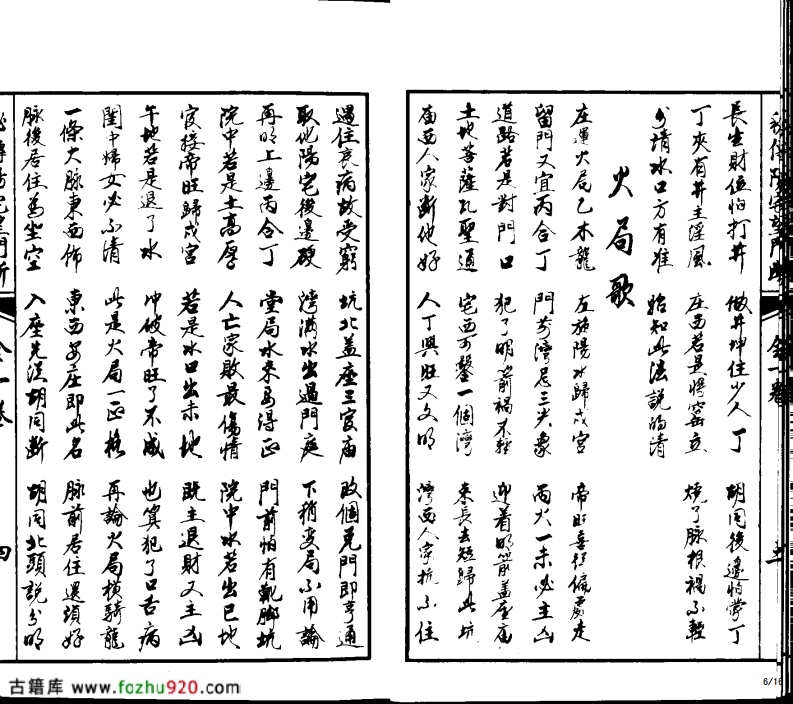 長生財位怕打井 做井坤住少人丁 胡同後邊怕掌丁
丁夾有井主淫風 庄西若是將窑立 燒了脉根禍不輕
分清水口方有准 始知此法說的清
火局歌
左運火局乙木龍 左旋陽水歸戌宮 帝旺喜行偏處走
留門又宜丙合丁 門前灣尼三尖象 丙火一未必主凶
道路若是對門口 犯了明箭禍不輕 迎着明箭蓋座庙
土地菩薩孔聖通 宅西可鑿一個灣 東長去短歸此坑
庙西人家斷他好 人丁興旺又文明 灣西人家抗不住
遇住衰病故受窮 坑北盖座三官庙 改個克門即亨通
取化陽宅後邊硬 灣滿水出過門庭 下稍變局不用論
再明上邊丙合丁 堂局水來為得正 門前怕有靴脚坑
院中若是土高厚 人亡家敗最傷情 院中水若出巳地
官祿帝旺歸戌宮 若是水口出未地 既主退財又主凶
午地若是退了水 冲破帝旺了不成 也算犯了口舌病
閨中婦女必不清 此是火局一正格 再論火局橫騎龍
一條大脉東西佈 東西安庄即此名 脉前居住還須好
脉後居住為坐空 入座先從胡同斷 胡同北頭說分明
四
古籍库 www.fozhu920.com
6/16